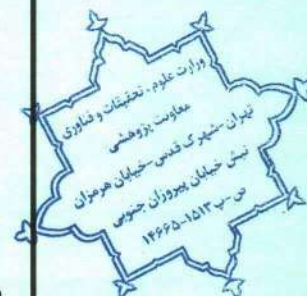 وزارت علوم، تحقیقات و فناوری
معاونت پژوهشی
تهران-شهرک قدس-خیابان هرمزان
نبش خیابان پیروزان جنوبی
ص-پ ۱۵۱۳-۱۴۶۶۵